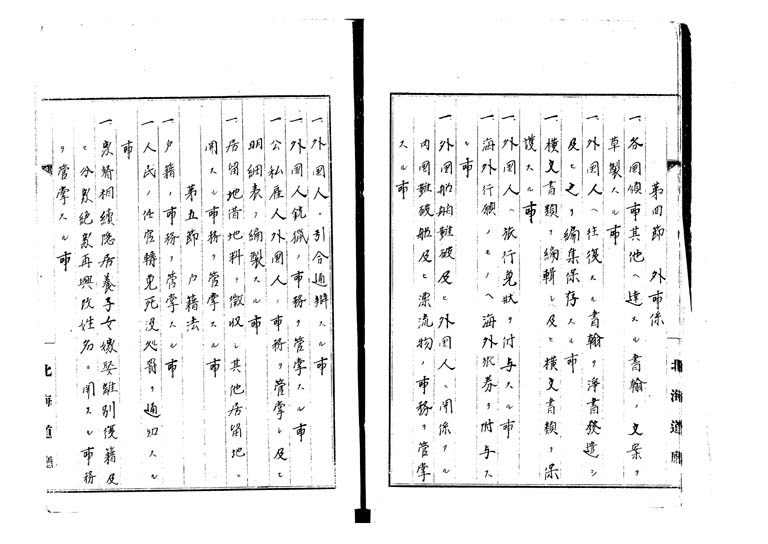 第四節 外事係
一 各国領事其他ヘ達スル書翰ノ文案ヲ
草製スル事
一 外国人ヘ往復スル書翰ヲ浄書發遣シ
及ヒ之ヲ編集保存スル事
一 横文書類ヲ編輯シ及ヒ横文書類ヲ保
護スル事
一 外国人ヘ旅行免状ヲ付与スル事
一 海外行願ノモノヘ海外旅券ヲ附与ス
ル事
一 外国船舶難破及ヒ外国人ニ関係スル
内国難破船及ヒ漂流物ノ事務ヲ管掌
スル事
北海道廳
一 外国人ニ引合通辯スル事
一 外国人銃猟ノ事務ヲ管掌スル事
一 公私雇入外国人ノ事務ヲ管掌シ及ヒ
明細表ヲ編製スル事
一 居留地借地料ヲ徴収シ其他居留地ニ
関スル事務ヲ管掌スル事
第五節 戸籍法
一 戸籍ノ事務ヲ管掌スル事
一 人民ノ任官轉免死没処罰ヲ通知スル
事
一 家督相続隠居養子女嫁娶離別復籍及
ヒ分家絶家再興改姓名ニ関スル事務
ヲ管掌スル事
北海道廳